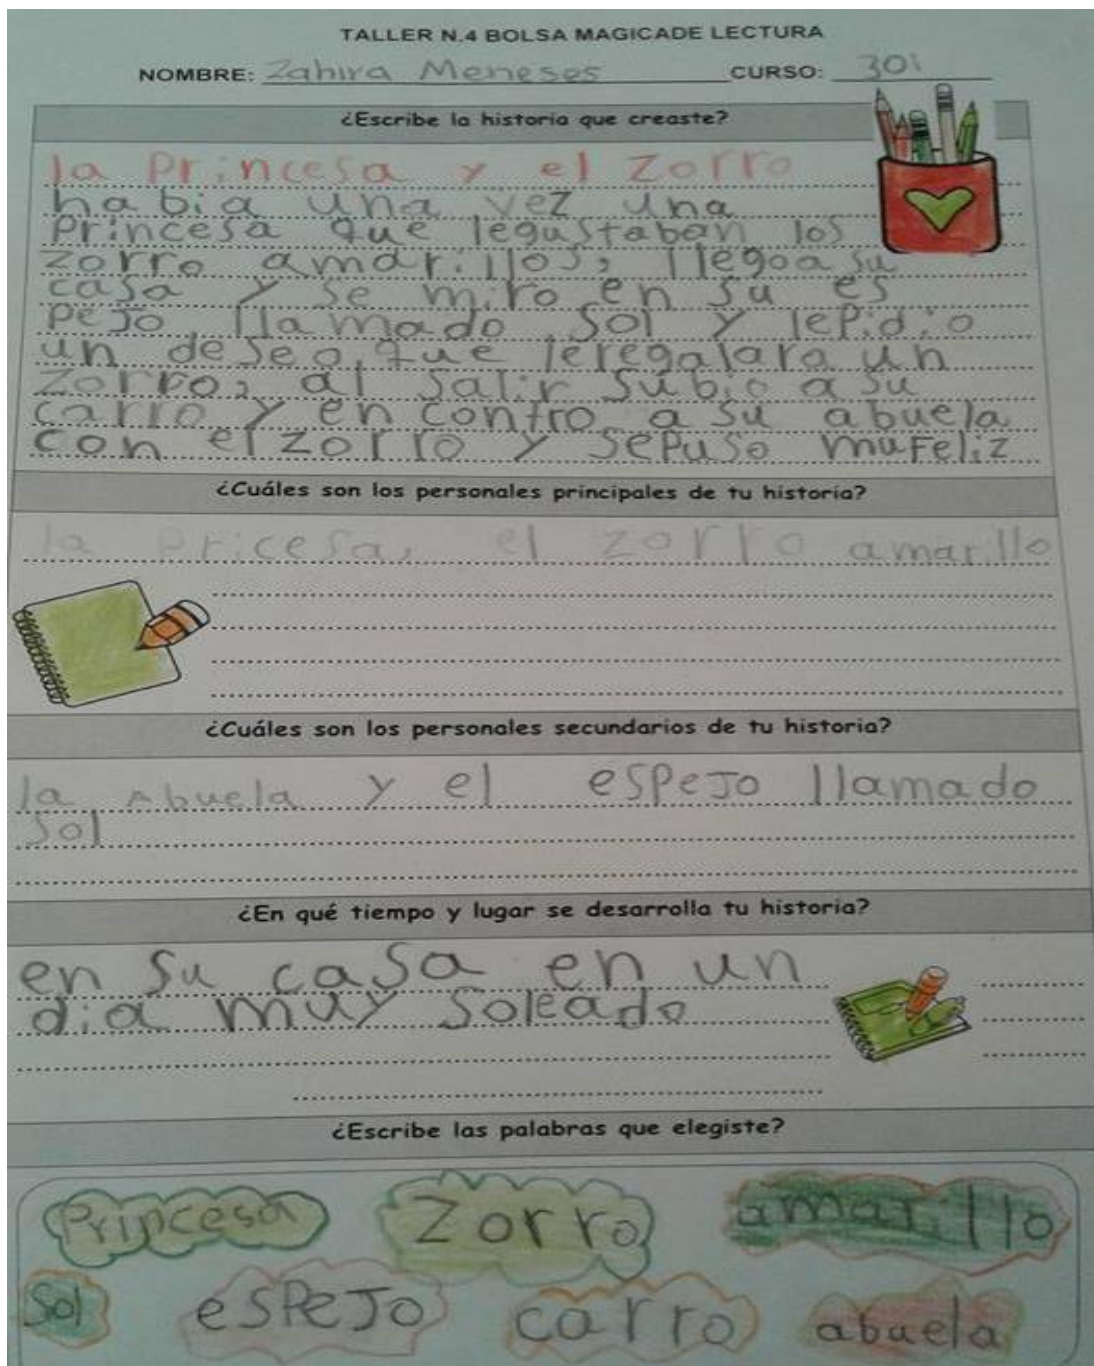 TALLER N.4 BOLSA MAGICADE LECTURA
NOMBRE: Zahira Meneses CURSO: 301
¿Escribe la historia que creaste?
la Princesa y el Zorro
habia una vez una
Princesa que legustaban los
zorro amarillos, llegoa su
casa y se miro en su es
pejo llamado Sol y lepidio
un deseo, que leregalara un
zorro, al salir subio a su
carro y en contro a su abuela
con el zorro y sepuso muFeliz
¿Cuáles son los personales principales de tu historia?
la pricesa, el zorro amarillo
¿Cuáles son los personales secundarios de tu historia?
la Abuela y el espejo llamado
Sol
¿En qué tiempo y lugar se desarrolla tu historia?
en su casa en un
dia muy soleado
¿Escribe las palabras que elegiste?
Princesa Zorro amarillo
Sol espejo carro abuela